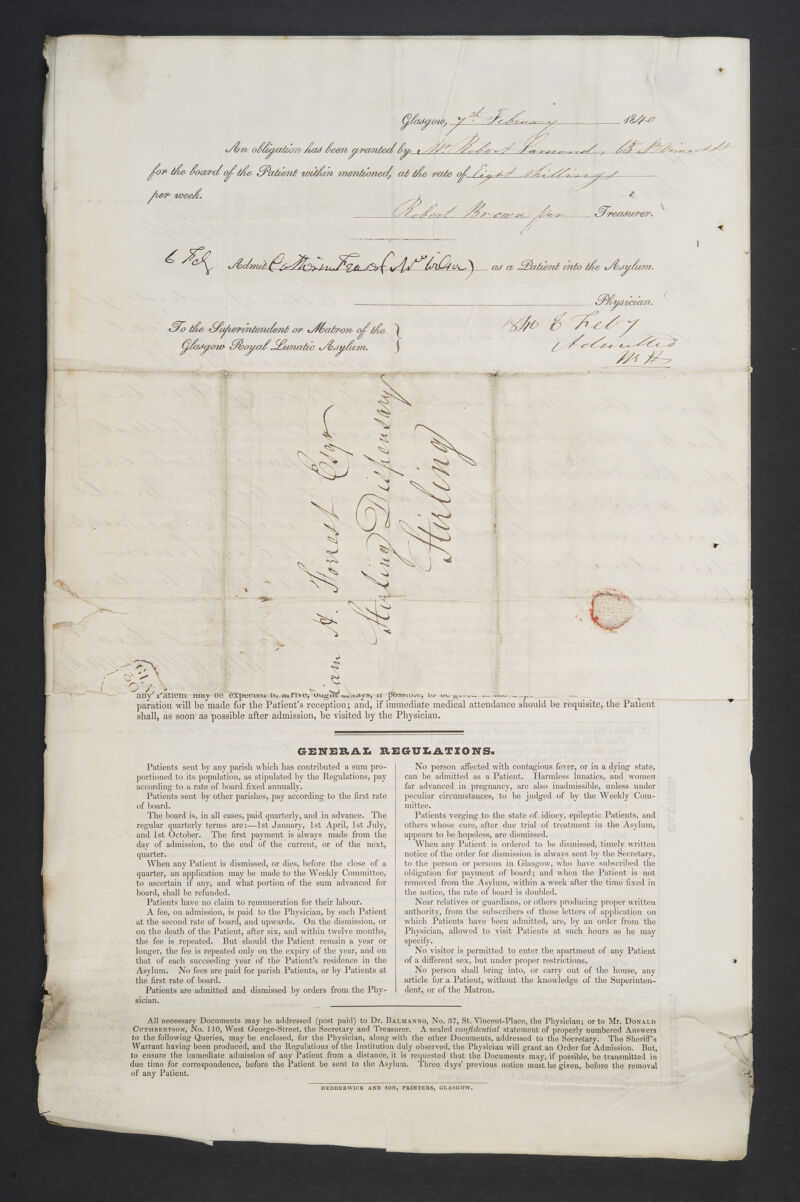 Glasgow, 7th February 1840
An obligation has been granted by Mr Robert Lamond, 65 St Vincent St
for the board of the Patient within mentioned, at the rate of Eight shillings
per week.
Robert Brown Treasurer.
6 Feby Admit (Mrs Wilson) as a Patient into the Asylum.
Physician.
To the Superintendent or Matron of the
Glasgow Royal Lunatic Asylum.
1840 6 Feby
Admitted
iam H. Forrest Esqr
Stirling Dispensary
Stirling
GLA
any Patient may be expected to arrive, ought always, if possible, to be
paration will be made for the Patient's reception; and, if immediate medical attendance should be requisite, the Patient
shall, as soon as possible after admission, be visited by the Physician.
GENERAL REGULATIONS.
Patients sent by any parish which has contributed a sum pro-
portioned to its population, as stipulated by the Regulations, pay
according to a rate of board fixed annually.
Patients sent by other parishes, pay according to the first rate
of board.
The board is, in all cases, paid quarterly, and in advance. The
regular quarterly terms are:—1st January, 1st April, 1st July,
and 1st October. The first payment is always made from the
day of admission, to the end of the current, or of the next,
quarter.
When any Patient is dismissed, or dies, before the close of a
quarter, an application may be made to the Weekly Committee,
to ascertain if any, and what portion of the sum advanced for
board, shall be refunded.
Patients have no claim to remuneration for their labour.
A fee, on admission, is paid to the Physician, by each Patient
at the second rate of board, and upwards. On the dismission, or
on the death of the Patient, after six, and within twelve months,
the fee is repeated. But should the Patient remain a year or
longer, the fee is repeated only on the expiry of the year, and on
that of each succeeding year of the Patient's residence in the
Asylum. No fees are paid for parish Patients, or by Patients at
the first rate of board.
Patients are admitted and dismissed by orders from the Phy-
sician.
No person affected with contagious fever, or in a dying state,
can be admitted as a Patient. Harmless lunatics, and women
far advanced in pregnancy, are also inadmissible, unless under
peculiar circumstances, to be judged of by the Weekly Com-
mittee.
Patients verging to the state of idiocy, epileptic Patients, and
others whose cure, after due trial of treatment in the Asylum,
appears to be hopeless, are dismissed.
When any Patient is ordered to be dismissed, timely written
notice of the order for dismission is always sent by the Secretary,
to the person or persons in Glasgow, who have subscribed the
obligation for payment of board; and when the Patient is not
removed from the Asylum, within a week after the time fixed in
the notice, the rate of board is doubled.
Near relatives or guardians, or others producing proper written
authority, from the subscribers of those letters of application on
which Patients have been admitted, are, by an order from the
Physician, allowed to visit Patients at such hours as he may
specify.
No visitor is permitted to enter the apartment of any Patient
of a different sex, but under proper restrictions.
No person shall bring into, or carry out of the house, any
article for a Patient, without the knowledge of the Superinten-
dent, or of the Matron.
All necessary Documents may be addressed (post paid) to Dr. BALMANNO, No. 37, St. Vincent-Place, the Physician; or to Mr. DONALD
CUTHBERTSON, No. 110, West George-Street, the Secretary and Treasurer. A sealed confidential statement of properly numbered Answers
to the following Queries, may be enclosed, for the Physician, along with the other Documents, addressed to the Secretary. The Sheriff's
Warrant having been produced, and the Regulations of the Institution duly observed, the Physician will grant an Order for Admission. But,
to ensure the immediate admission of any Patient from a distance, it is requested that the Documents may, if possible, be transmitted in
due time for correspondence, before the Patient be sent to the Asylum. Three days' previous notice must be given, before the removal
of any Patient.
HEDDERWICK AND SON, PRINTERS, GLASGOW.